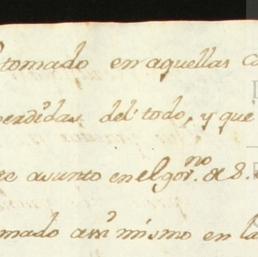 tomado en aquellas
perdidas del todo, y que
asunto en el gov.no de S.
mado assi mismo en la